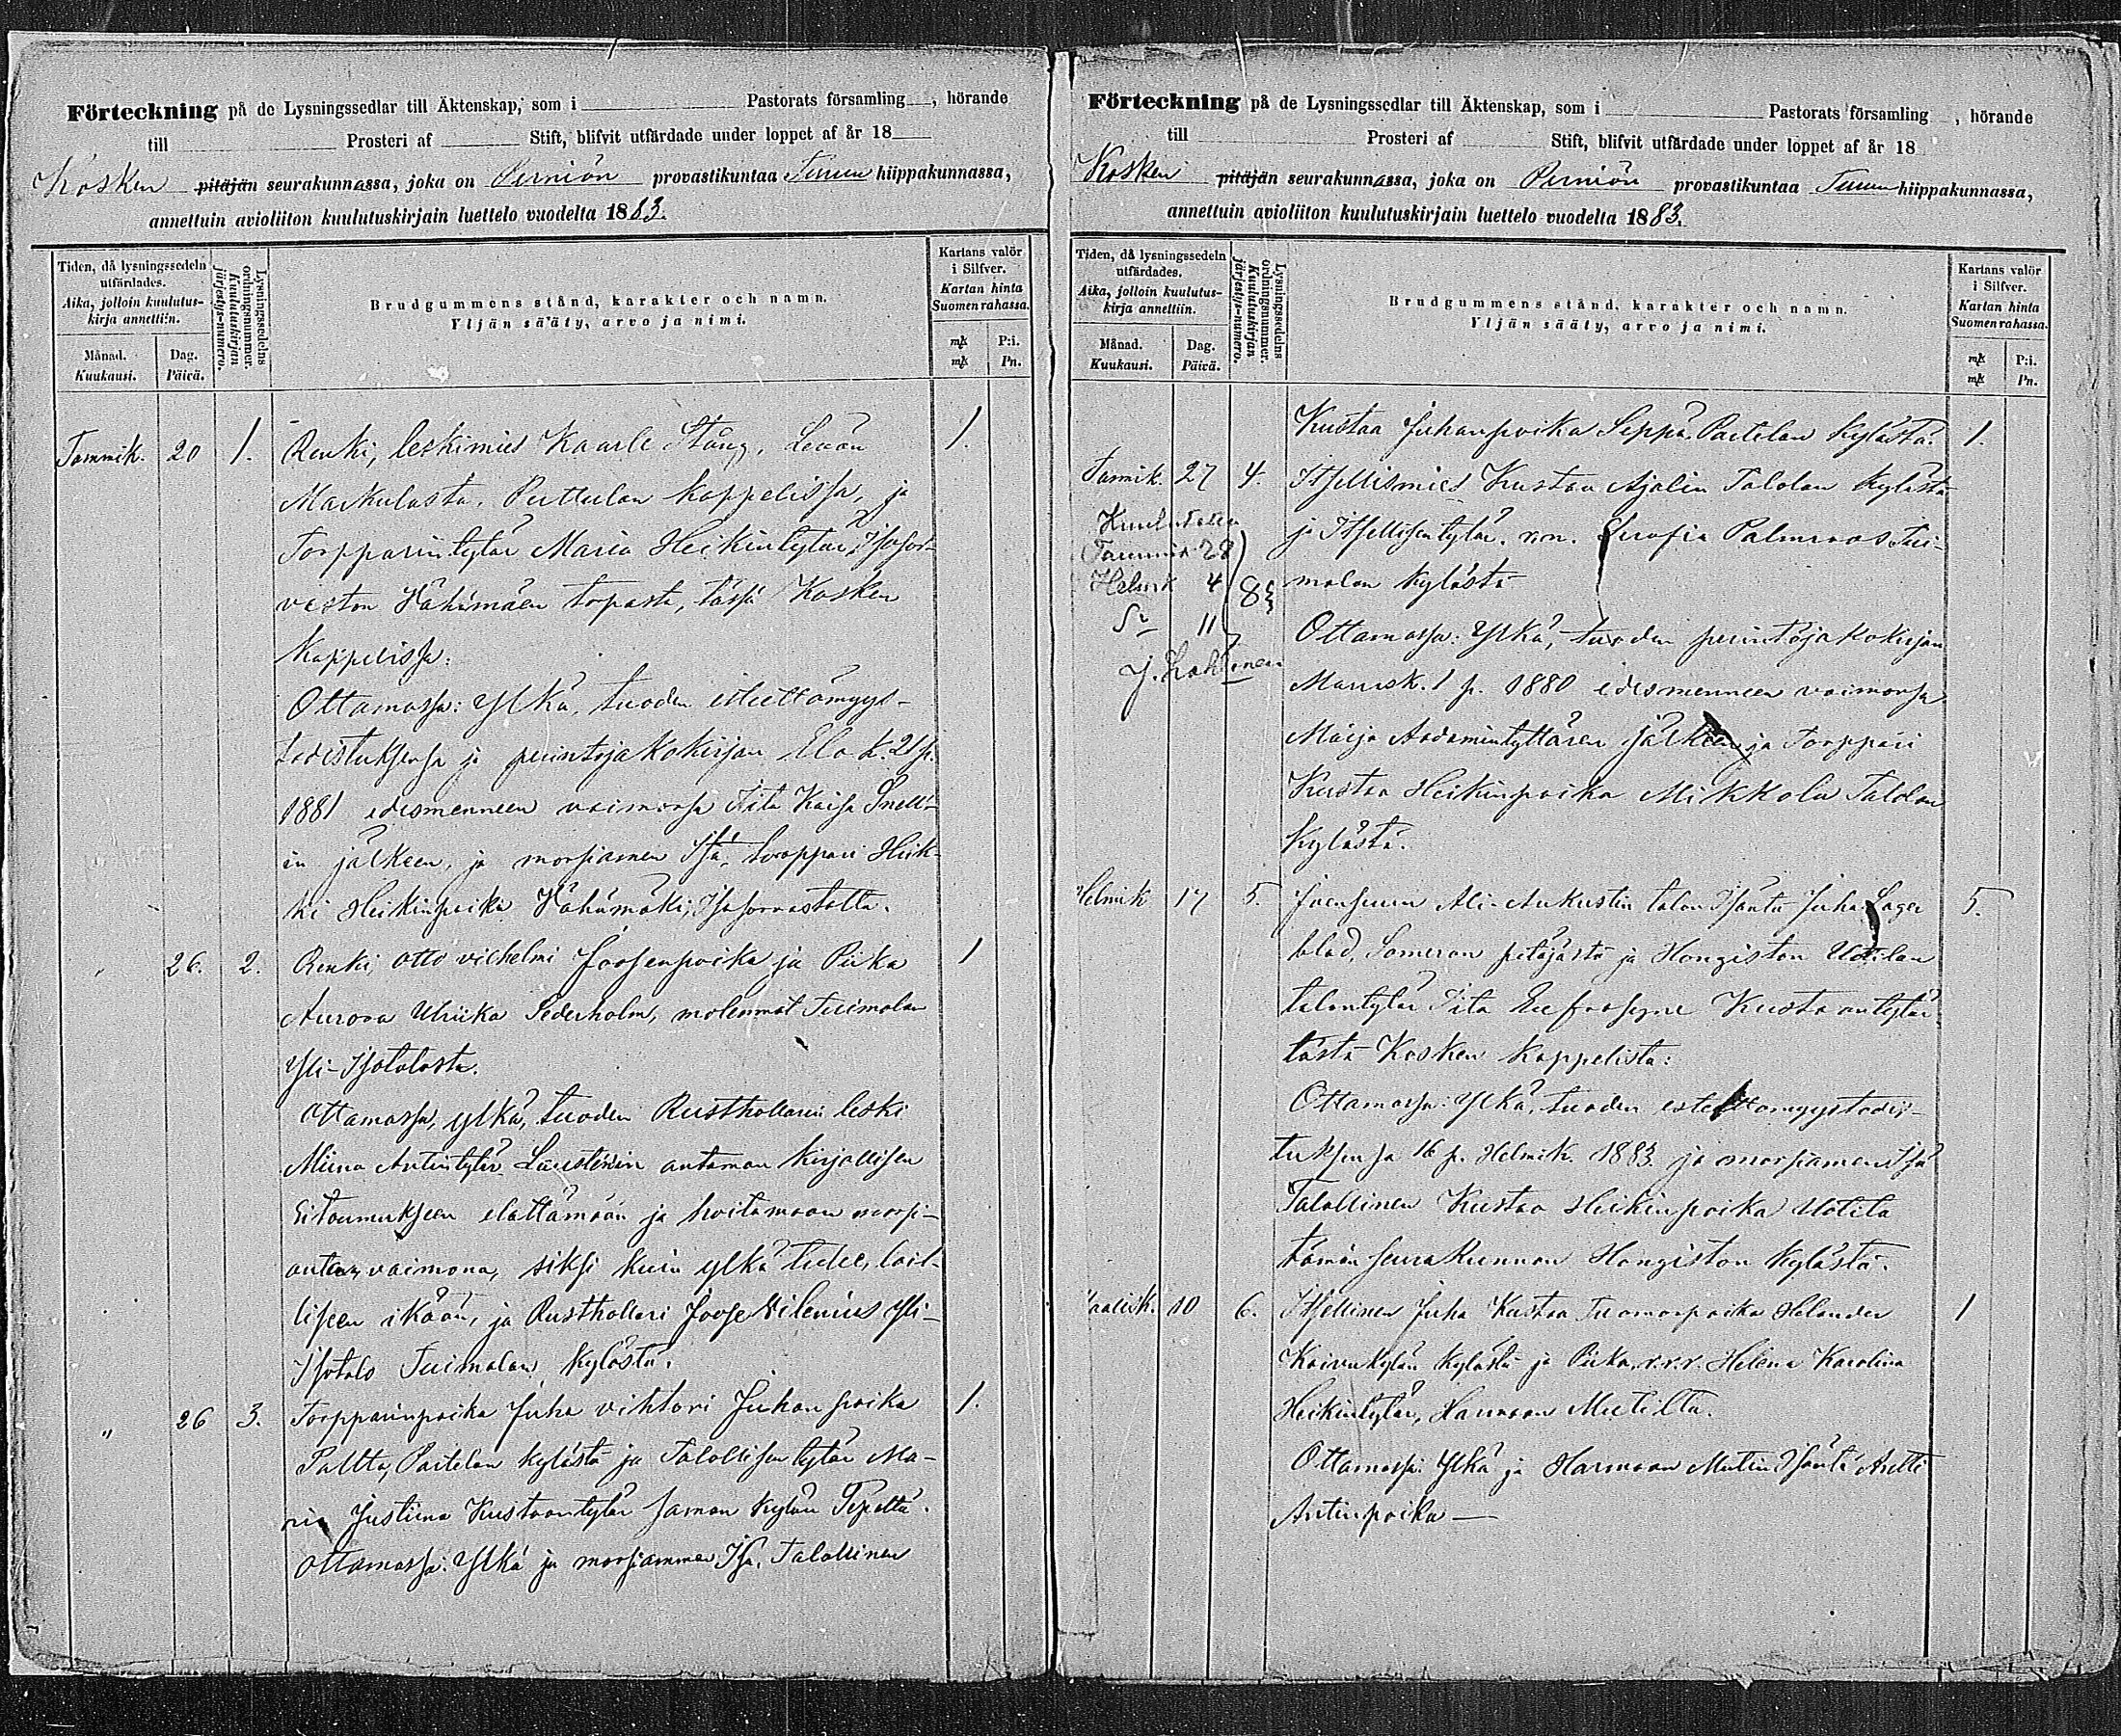 Förteckning på de Lysningssedlar till Äktenskap, som i Pastorats församling , hörande
till Prosteri af Stift, blifvit utfärdade under loppet af år 18
Kosken pitäjän seurakunnassa, joka on Perniön provastikuntaa Turun hiippakunnassa,
annettuin avioliiton kuulutuskirjain luettelo vuodelta 1883.
Tiden, då lysningssedeln utfärdades.
Aika, jolloin kuulutus-kirja annettiin.
Månad. Kuukausi.
Dag. Päivä.
Lysningssedelns ordningsnummer.
Kuulutuskirjan järjestys-numero.
Brudgummens stånd, karakter och namn.
Yljän sääty, arvo ja nimi.
Kartans valör i Silfver.
Kartan hinta Suomen rahassa.
mk P:i.
mk Pn.
Tammik. 20 1. Renki, leskimies Kaarle Stång, Liian 1.
Markulasta, Puttulan kappelissa, ja
Torpparintytär Maria Heikintytär, Isosor-
vaston Vähämäen torpasta, tässä Kosken
Kappelissa:
Ottamassa: Ylkä, tuoden esteettömyys-
todistuksensa ja perintöjakokirjan Elok. 21 p.
1881 edesmenneen vaimonsa Fita Kaisa Snell-
in jälkeen, ja morsiamen Isä, torppari Heik-
ki Heikinpoika Vähämäki, Isosorvastolla.
" 26. 2. Renki Otto Vilhelmi Joosenpoika ja Piika 1
Aurora Ulriika Sederholm, molemmat Tuimalan
Yli-Isotalosta.
Ottamassa, ylkä, tuoden Rusthollarin leski
Miina Antintytär Laustenin antaman kirjallisen
sitoumuksen elättämään ja hoitamaan morsi-
anten vaimona, siksi kuin ylkä tulee, lail-
liseen ikään, ja Rusthollari Joose Vilenius Yli-
Isotalo Tuimalan kylästä.
" 26 3. Torpparinpoika Juha Vihtori Juhanpoika 1.
Paltta, Partelan kylästä ja Talollisentytär Ma-
ria Justiina Kustaantytär saman kylän Sepältä.
Ottamassa: Ylkä ja morsiammen Isä, Talollinen
Förteckning på de Lysningssedlar till Äktenskap, som i Pastorats församling , hörande
till Prosteri af Stift, blifvit utfärdade under loppet af år 18
Kosken pitäjän seurakunnassa, joka on Perniön provastikuntaa Turun hiippakunnassa,
annettuin avioliiton kuulutuskirjain luettelo vuodelta 1883.
Tiden, då lysningssedeln utfärdades.
Aika, jolloin kuulutus-kirja annettiin.
Månad. Kuukausi.
Dag. Päivä.
Lysningssedelns ordningsnummer.
Kuulutuskirjan järjestys-numero.
Brudgummens stånd, karakter och namn.
Yljän sääty, arvo ja nimi.
Kartans valör i Silfver.
Kartan hinta Suomen rahassa.
mk P:i.
mk Pn.
Kustaa Juhanpoika Seppä, Partelan kylästä. 1.
Tammik. 27 4. Itsellismies Kustaa Ajalin Talolan kylästä
ja Itsellisentytär, v.n. Serafia Palmroos Tui-
malan kylästä
Kuulutettu
Tammik 28
Helmik 4
S:n 11
83
Ottamassa: Ylkä, tuoden perintöjakokirjan
Marrask. 1 p. 1880 edesmenneen vaimonsa
Maija Aadamintyttären jälkeen ja Torppari
Kustaa Heikinpoika Mikkola Talolan
kylästä.
Helmik 17 5. Joensuun Ali-Aukustin talon Isäntä Juha Lager 5.
blad, Someron pitäjästä ja Hongiston Uotilan
talontytär Fita Eufrosyne Kustaantytär
tästä Kosken kappelista:
Ottamassa: Ylkä, tuoden esteettömyystodis-
tuksensa 16 p. Helmik. 1883 ja morsiamen Isä
Talollinen Kustaa Heikinpoika Uotila
tämän seurakunnan Hongiston kylästä.
Maalisk. 10 6. Itsellinen Juha Kustaa Tuomaanpoika Helander 1
Koivukylän kylästä ja Piika, v.r.v. Helena Karolina
Heikintytär, Harmaan Mutilta.
Ottamassa: Ylkä ja Harmaan Mutin Isäntä Antti
Antinpoika —